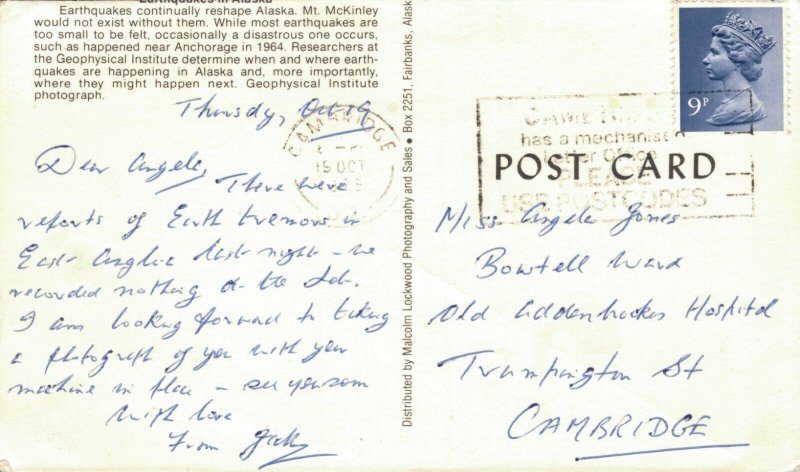 Earthquakes in Alaska
Earthquakes continually reshape Alaska. Mt. McKinley
would not exist without them. While most earthquakes are
too small to be felt, occasionally a disastrous one occurs,
such as happened near Anchorage in 1964. Researchers at
the Geophysical Institute determine when and where earth-
quakes are happening in Alaska and, more importantly,
where they might happen next. Geophysical Institute
photograph.
Thursday, Oct 19
Dear Angela,
There were
reports of Earth tremors in
East Anglia last night - we
recorded nothing at the Lab.
I am looking forward to taking
a photograph of you with your
machine in place - see you soon
With love
From
Distributed by Malcolm Lockwood Photography and Sales • Box 2251, Fairbanks, Alask
CAMBRIDGE
19 OCT
9P
has a mechanised
Letter Office
PLEASE
USE POSTCODES
POST CARD
Miss Angela Jones
Bowtell Ward
Old Addenbrookes Hospital
Trumpington St
CAMBRIDGE